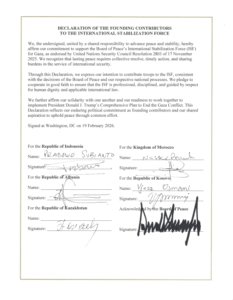 DECLARATION OF THE FOUNDING CONTRIBUTORS
TO THE INTERNATIONAL STABILIZATION FORCE
We, the undersigned, united by a shared responsibility to advance peace and stability, hereby
affirm our commitment to support the Board of Peace's International Stabilization Force (ISF)
for Gaza, as endorsed by United Nations Security Council Resolution 2803 of 17 November
2025. We recognize that lasting peace requires collective resolve, steady action, and sharing
burdens in the service of international security.
Through this Declaration, we express our intention to contribute troops to the ISF, consistent
with the decisions of the Board of Peace and our respective national processes. We pledge to
cooperate in good faith to ensure that the ISF is professional, disciplined, and guided by respect
for human dignity and applicable international law.
We further affirm our solidarity with one another and our readiness to work together to
implement President Donald J. Trump's Comprehensive Plan to End the Gaza Conflict. This
Declaration reflects our enduring political commitment as founding contributors and our shared
aspiration to uphold peace through common effort.
Signed at Washington, DC on 19 February 2026.
For the Republic of Indonesia
Name: PRABOWO SUBIANTO
Signature:
For the Kingdom of Morocco
Name:
Signature:
For the Republic of Albania
Name:
Signature:
For the Republic of Kosovo
Name: Vjosa Osmani
Signature:
For the Republic of Kazakhstan
Name:
Signature:
Acknowledged by the Board of Peace
Signature: